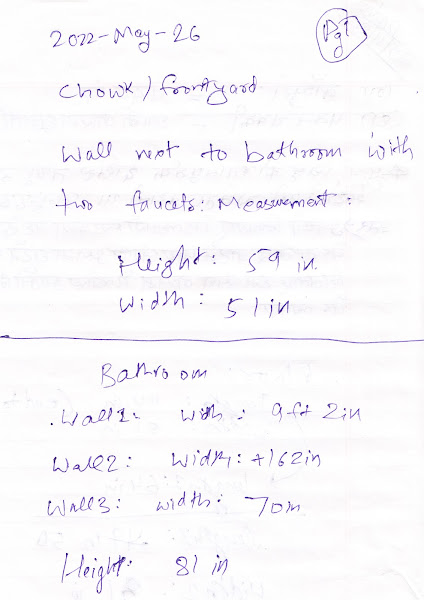 2022-May-26
Pg1
Chowk / frontyard
Wall next to bathroom with
two faucets: Measurement:
Height: 59 in.
Width: 51 in
Bathroom
Wall1: width: 9ft 2in
Wall2: Width: +162in
Wall3: width: 70in
Height: 81 in